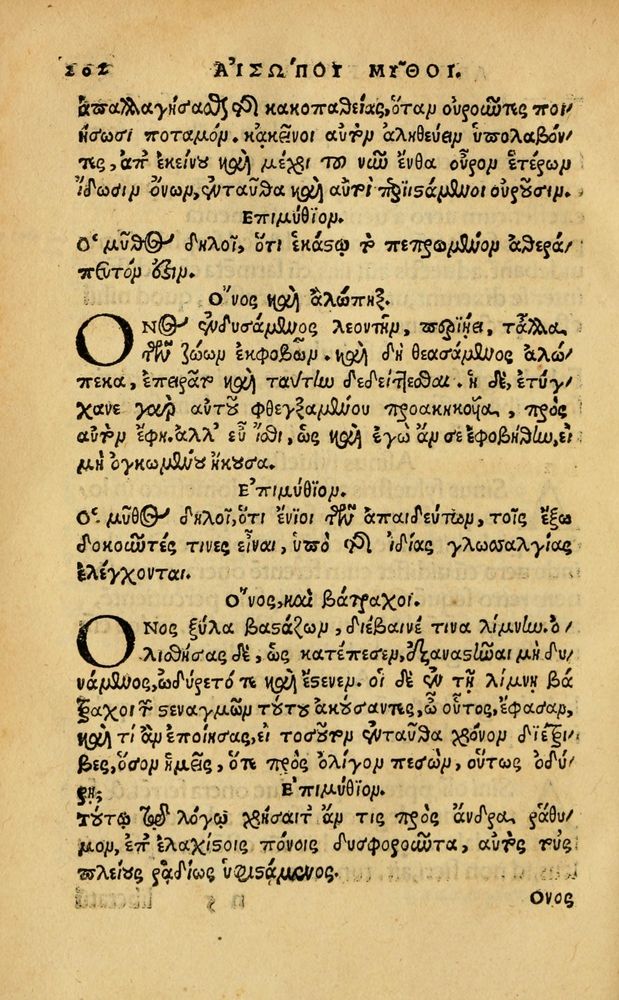 202 ΑἸΣΩ´ΠΟΥ ΜΥ͂ΘΟΙ.
ἀπαλλαγήσεσθαι τῆς κακοπαθείας, ὅταν οὐροῦντες ποι/
ήσωσι ποταμόν. κἀκεῖνοι αὐτὸν ἀληθεύειν ὑπολαβόν/
τες, ἀπ' ἐκείνου καὶ μέχρι τοῦ νῦν ἔνθα οὖρον ἑτέρων
ἴδωσιν ὄνων, ἐνταῦθα καὶ αὐτοὶ περιϊστάμενοι οὐροῦσιν.
Επιμύθιον.
Ο῾ μῦθος δηλοῖ, ὅτι ἑκάστῳ τὸ πεπρωμένον ἀθερά/
πευτόν ἐστιν.
Ο῎νος καὶ ἀλώπηξ.
ΟΝος ἐνδυσάμενος λεοντῆν, περιῄει, τἆλλα
τῶν ζώων ἐκφοβῶν. καὶ δὴ θεασάμενος ἀλώ/
πεκα, ἐπειρᾶτο καὶ ταύτην δεδείττεσθαι. ἡ δὲ, ἐτύγ/
χανε γὰρ αὐτοῦ φθεγξαμένου προακηκουῖα, πρὸς
αὐτὸν ἔφη. ἀλλ' εὖ ἴσθι, ὡς καὶ ἐγὼ ἄν σε ἐφοβήθην, εἰ
μὴ ὀγκωμένου ἤκουσα.
Ε᾿πιμύθιον.
Ο῾ μῦθος δηλοῖ, ὅτι ἔνιοι τῶν ἀπαιδεύτων, τοῖς ἔξω
δοκοῦντές τινες εἶναι, ὑπὸ τῆς ἰδίας γλωσσαλγίας
ἐλέγχονται.
Ο῎νος, καὶ βάτραχοι.
ΟΝος ξύλα βαστάζων, διέβαινέ τινα λίμνην. ὀ/
λισθήσας δὲ, ὡς κατέπεσεν, ἐξαναστῆναι μὴ δυ/
νάμενος, ὠδύρετό τε καὶ ἔστενεν. οἱ δὲ ἐν τῇ λίμνῃ βά
τραχοι τῶν στεναγμῶν τούτου ἀκούσαντες, ὦ οὗτος, ἔφασαν,
καὶ τί ἂν ἐποίησας, εἰ τοσοῦτον ἐνταῦθα χρόνον διέτρι/
βες, ὅσον ἡμεῖς, ὅτε πρὸς ὀλίγον πεσὼν, οὕτως ὀδύ/
ρῃ; Ε᾿πιμύθιον.
τούτῳ τῷ λόγῳ χρήσαιτ' ἄν τις πρὸς ἄνδρα ῥάθυ/
μον, ἐπ' ἐλαχίστοις πόνοις δυσφοροῦντα, αὐτὸς τοὺς
πλείους ῥᾳδίως ὑφιστάμενος.
Ονος